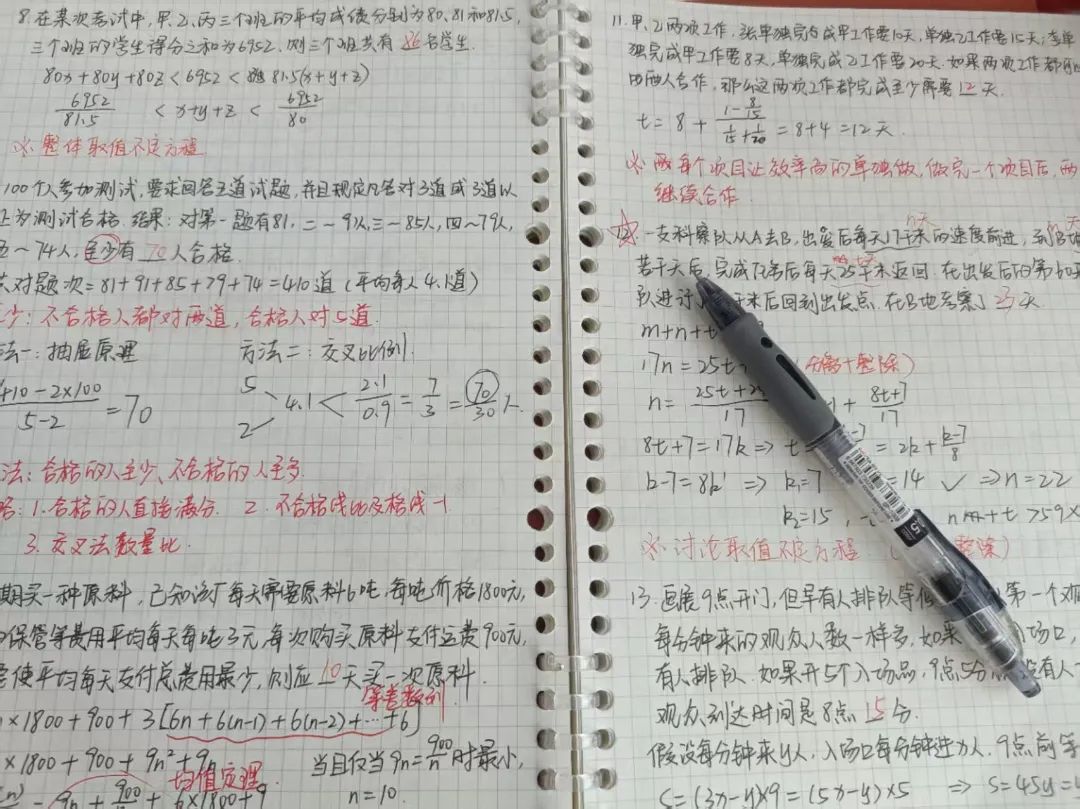 8. 在某次考试中，甲、乙、丙三个班的平均成绩分别为80、81和81.5，
三个班的学生得分之和为6952，则三个班共有 86 名学生.
80x+80y+80z<6952< 81.5(x+y+z)
6952/81.5 <x+y+z< 6952/80
※ 整体取值不定方程
100个人参加测试，要求回答五道试题，并且规定凡答对3道或3道以
上为测试合格. 结果：对第一题有81，二~91人，三~85人，四~79人，
五~74人，至少有70人合格.
对题次=81+91+85+79+74=410道（平均每人4.1道）
少：不合格人都对两道，合格人对5道.
法一：抽屉原理 方法二：交叉比例.
410-2×100/5-2 =70
5
2 4.1 < 2.1/0.9 = 7/3 = 70/30 人
法：合格的人至少、不合格的人至多.
1.合格的人直接满分. 2.不合格成 及格成-1
3.交叉法数量比.
期买一种原料，已知该厂每天需要原料6吨，每吨价格1800元，
保管等费用平均每天每吨3元，每次购买原料支付运费900元，
使平均每天支付总费用最少，则应10天买一次原料.
等差数列
×1800+900+3[6n+6(n-1)+6(n-2)+…+6]
×1800+900+9n²+9n 当且仅当9n=900/n时最小，
均值定理
9n+900/n+6×1800+9 n=10.
11. 甲、乙两项工作，张单独完成甲工作要10天，单独乙工作要15天；李单
独完成甲工作要8天，单独完成乙工作要20天. 如果两项工作都可
由两人合作，那么这两项工作都完成至少需要12天.
t=8+ (1-8/15)/(1/15+1/20) =8+4=12天.
※ 两 每个项目让效率高的单独做，做完一个项目后，两
继续合作.
n天
12. 一支科察队从A去B，出发后每天17千米的速度前进，到B地
m天
若干天后，完成任务后每天25千米返回. 在出发后的第60天
队进 米后回到出发点. 在B地考察了23天
m+n+t
17n=25t 分离+整除）
n= 25t+25/17 + 8t+7/17
8t+7=17k => t =2k+ k-7/8
k-7=8k' => k₁=7 =14 ✓ =>n=22
k₂=15， n m+t>59×
※ 讨论取值不定方程.
13. 画展9点开门，但早有人排队等 第一个观
每分钟来的观众人数一样多，如果 场口，
有人排队. 如果开5个入场品，9点5分 没有人
观众到达时间是8点15分.
假设每分钟来y人，入场口每分钟进x人. 9点前等
S=(3x-y)×9=(5x-y)×5 => S=45y=